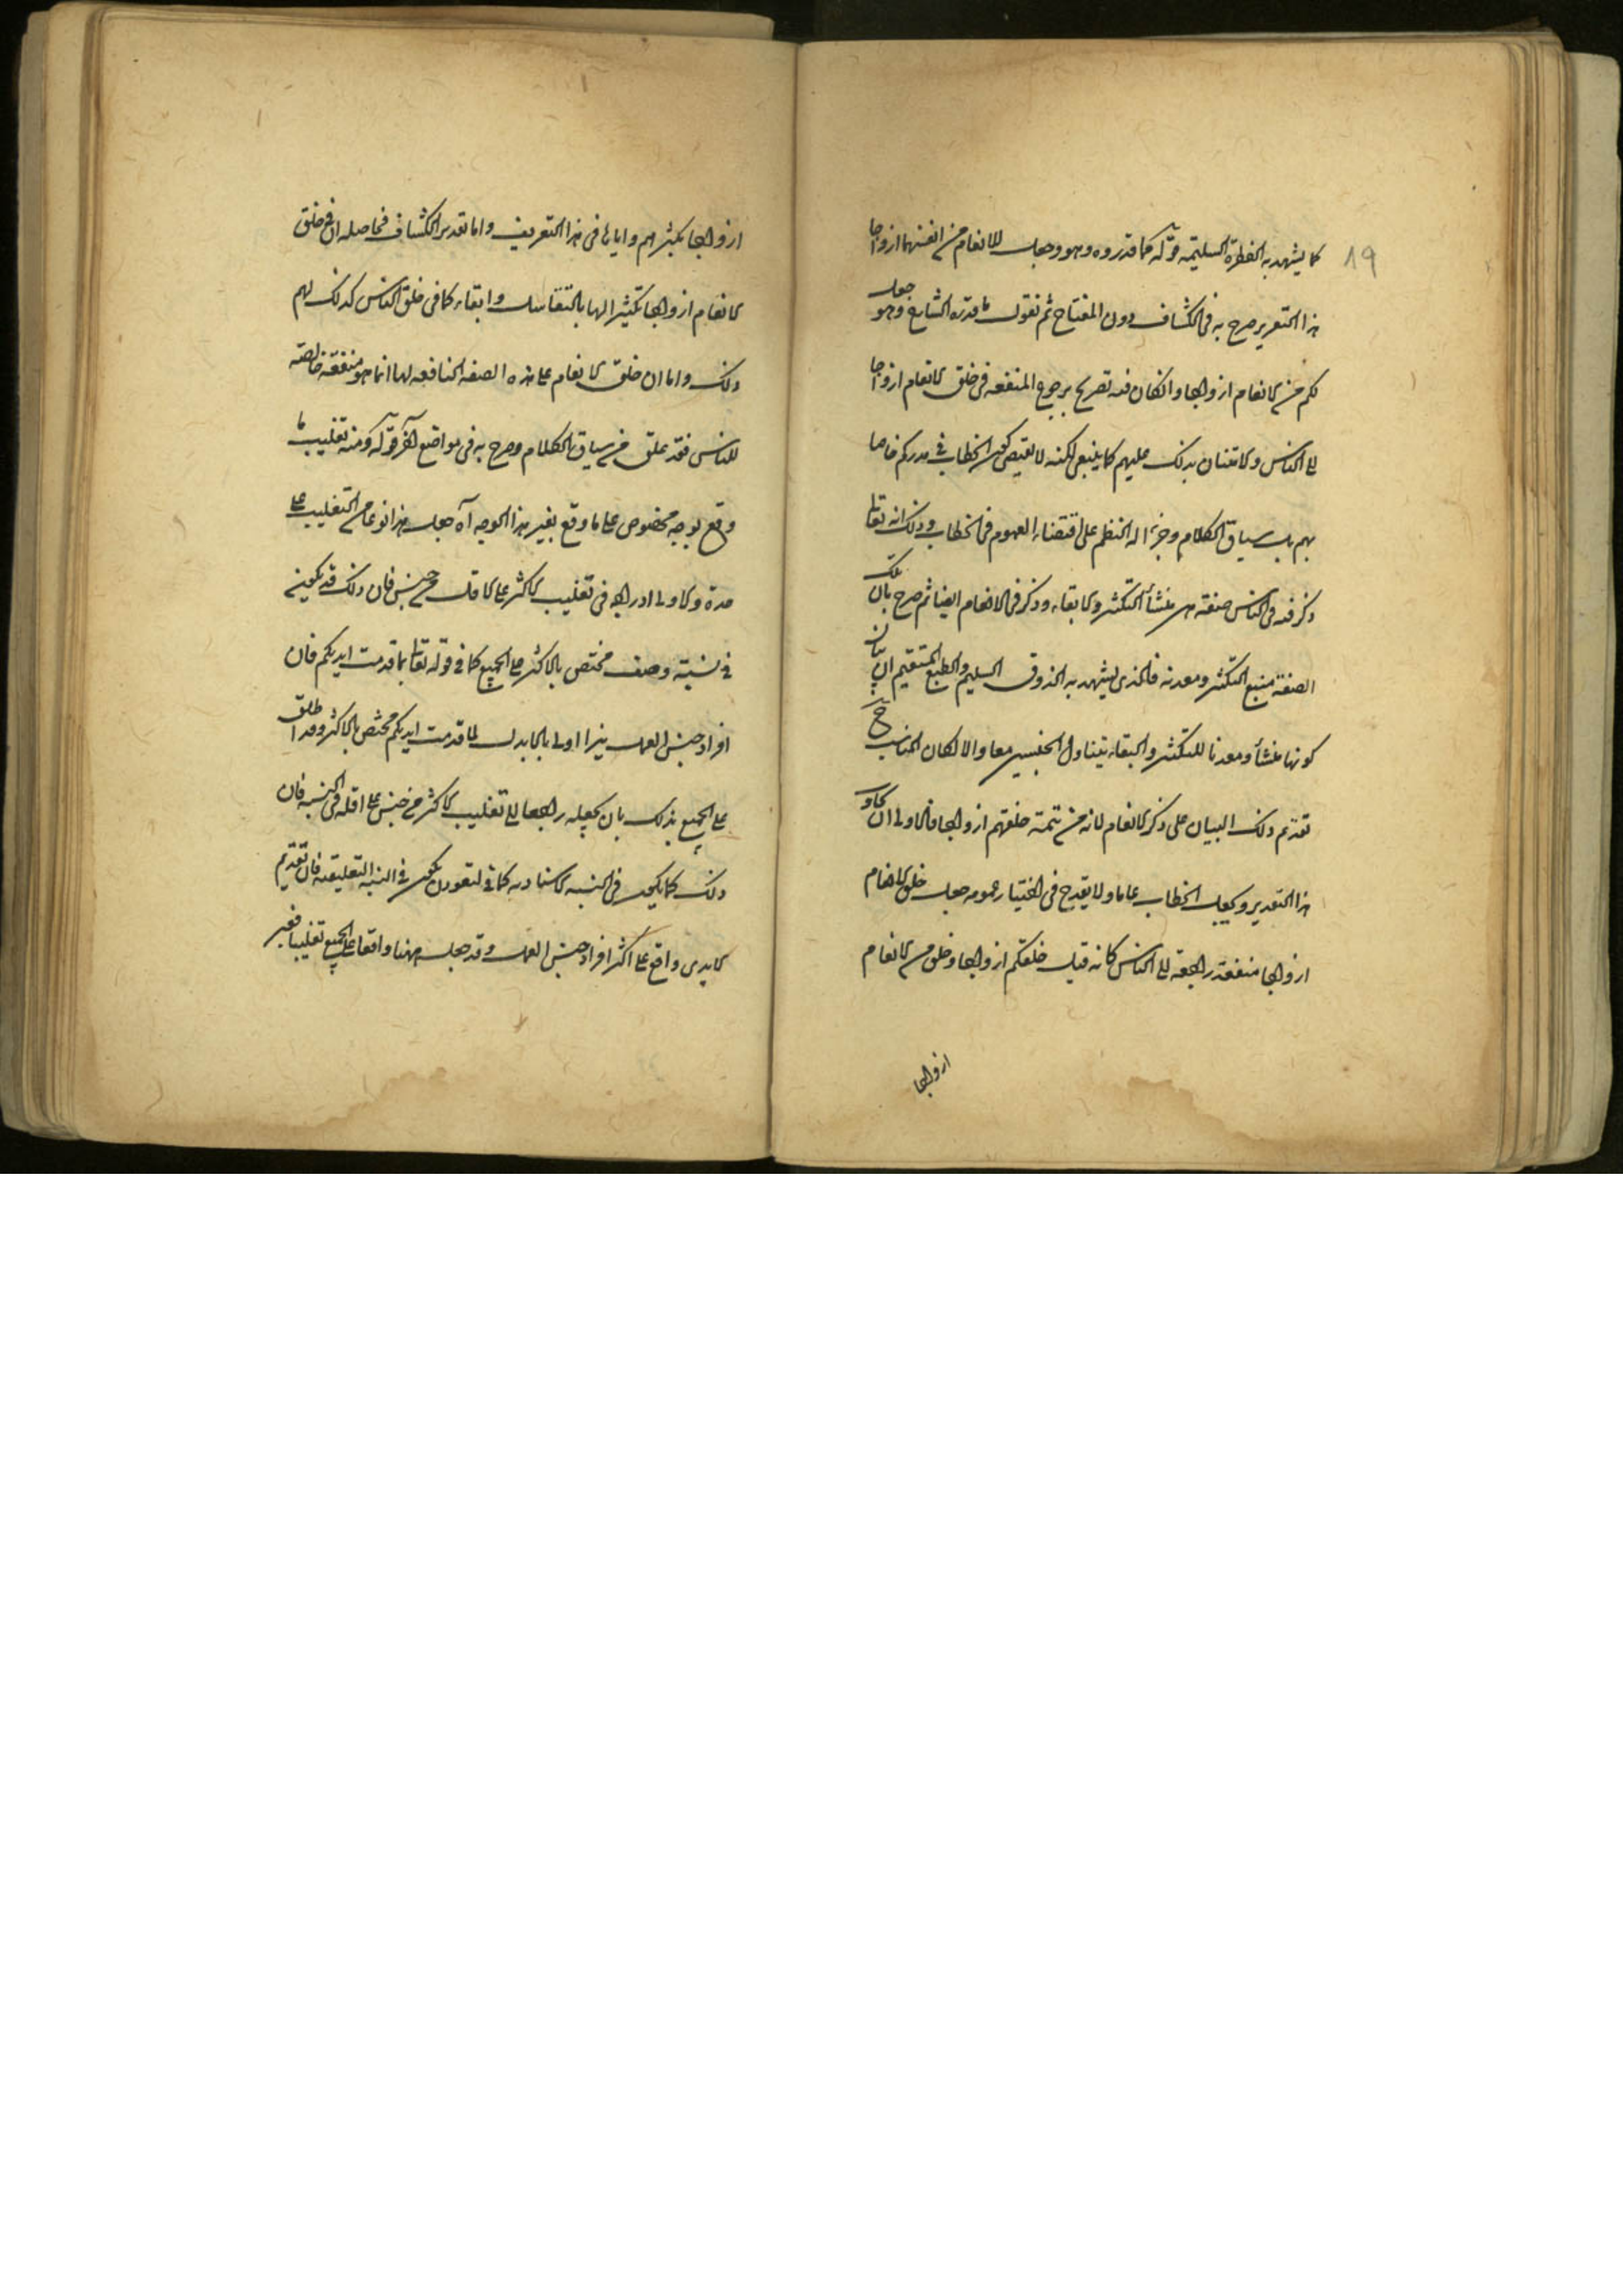 ١٩
كما يشهد به الفطرة السليمة قوله كما قدروه وهو وجعل للانعام من انفسها ازواجا
هذا التقرير صرح به فى الكشاف دون المفتاح ثم نقول ما قدره الشارح وهو جعل
لكم من الانعام ازواجا وانكان فيه تصريح برجوع المنفعة فى خلق الانعام ازواجا
الى الناس والامتنان بذلك عليهم كما ينبغى لكنه لا يقتضى كون الخطاب فى يذرؤكم خاصا
بهم بل سياق الكلام وجزالة النظم على اقتضاء العموم فى الخطاب وذلك انه تعالى
ذكر فى الناس صفة هى منشأ التكثر والابقاء وذكر فى الانعام ايضا ثم صرح بان تلك
الصفة منبع التكثر ومعدنه فالذى يشهد به الذوق السليم والطبع المستقيم ان بيان
كونها منشأ ومعدنا للتكثر والبقاء يتناول الجنسين معا والا لكان المناسب ح
تقديم ذلك البيان على ذكر الانعام لانه من تتمة خلقهم ازواجا فالاولى ان
هذا التقدير ويجعل الخطاب عاما ولا يقدح فى اختيار عمومه جعل خلق الانعام
ازواجا منفعة راجعة الى الناس كانه قيل خلقكم ازواجا وخلق من الانعام
ازواجا
ازواجا يكثرهم واياها فى هذا التعريف واما تقدير الكشاف فحاصله ان فى خلق
الانعام ازواجا تكثيرا لها بالتناسل وابقاء كما فى خلق الناس كذلك لهم
ذلك واما ان خلق الانعام على هذه الصفة النافعة لها انما هو منفعة خالصة
للناس فقد علق من سياق الكلام وصرح به فى مواضع اخر قوله ومنه تغليب ما
وقع بوجه مخصوص على ما وقع بغير هذا الوجه آه جعل هذا نوعا من التغليب على
حدة والاولى ادراجه فى تغليب الاكثر على الاقل من جنس فان ذلك قد يكون
فى نسبة وصف مختص بالاكثر على الجميع كما فى قوله تعالى بما قدمت ايديكم فان
افراد جنس العمل يزاولى بالايدى لما قدمت ايديكم مختص بالاكثر وقد اطلق
على الجميع بذلك بان يجعله راجعا الى تغليب الاكثر من جنس على اقله فى النسبة فان
ذلك كما يكون فى النسبة الاسنادية كما فى لتعودن يكون فى النسبة التعليقية فان تقديم
الايدى واقع على اكثر افراد جنس العمل وقد جعل ههنا واقعا على الجميع تغليبا فعبر